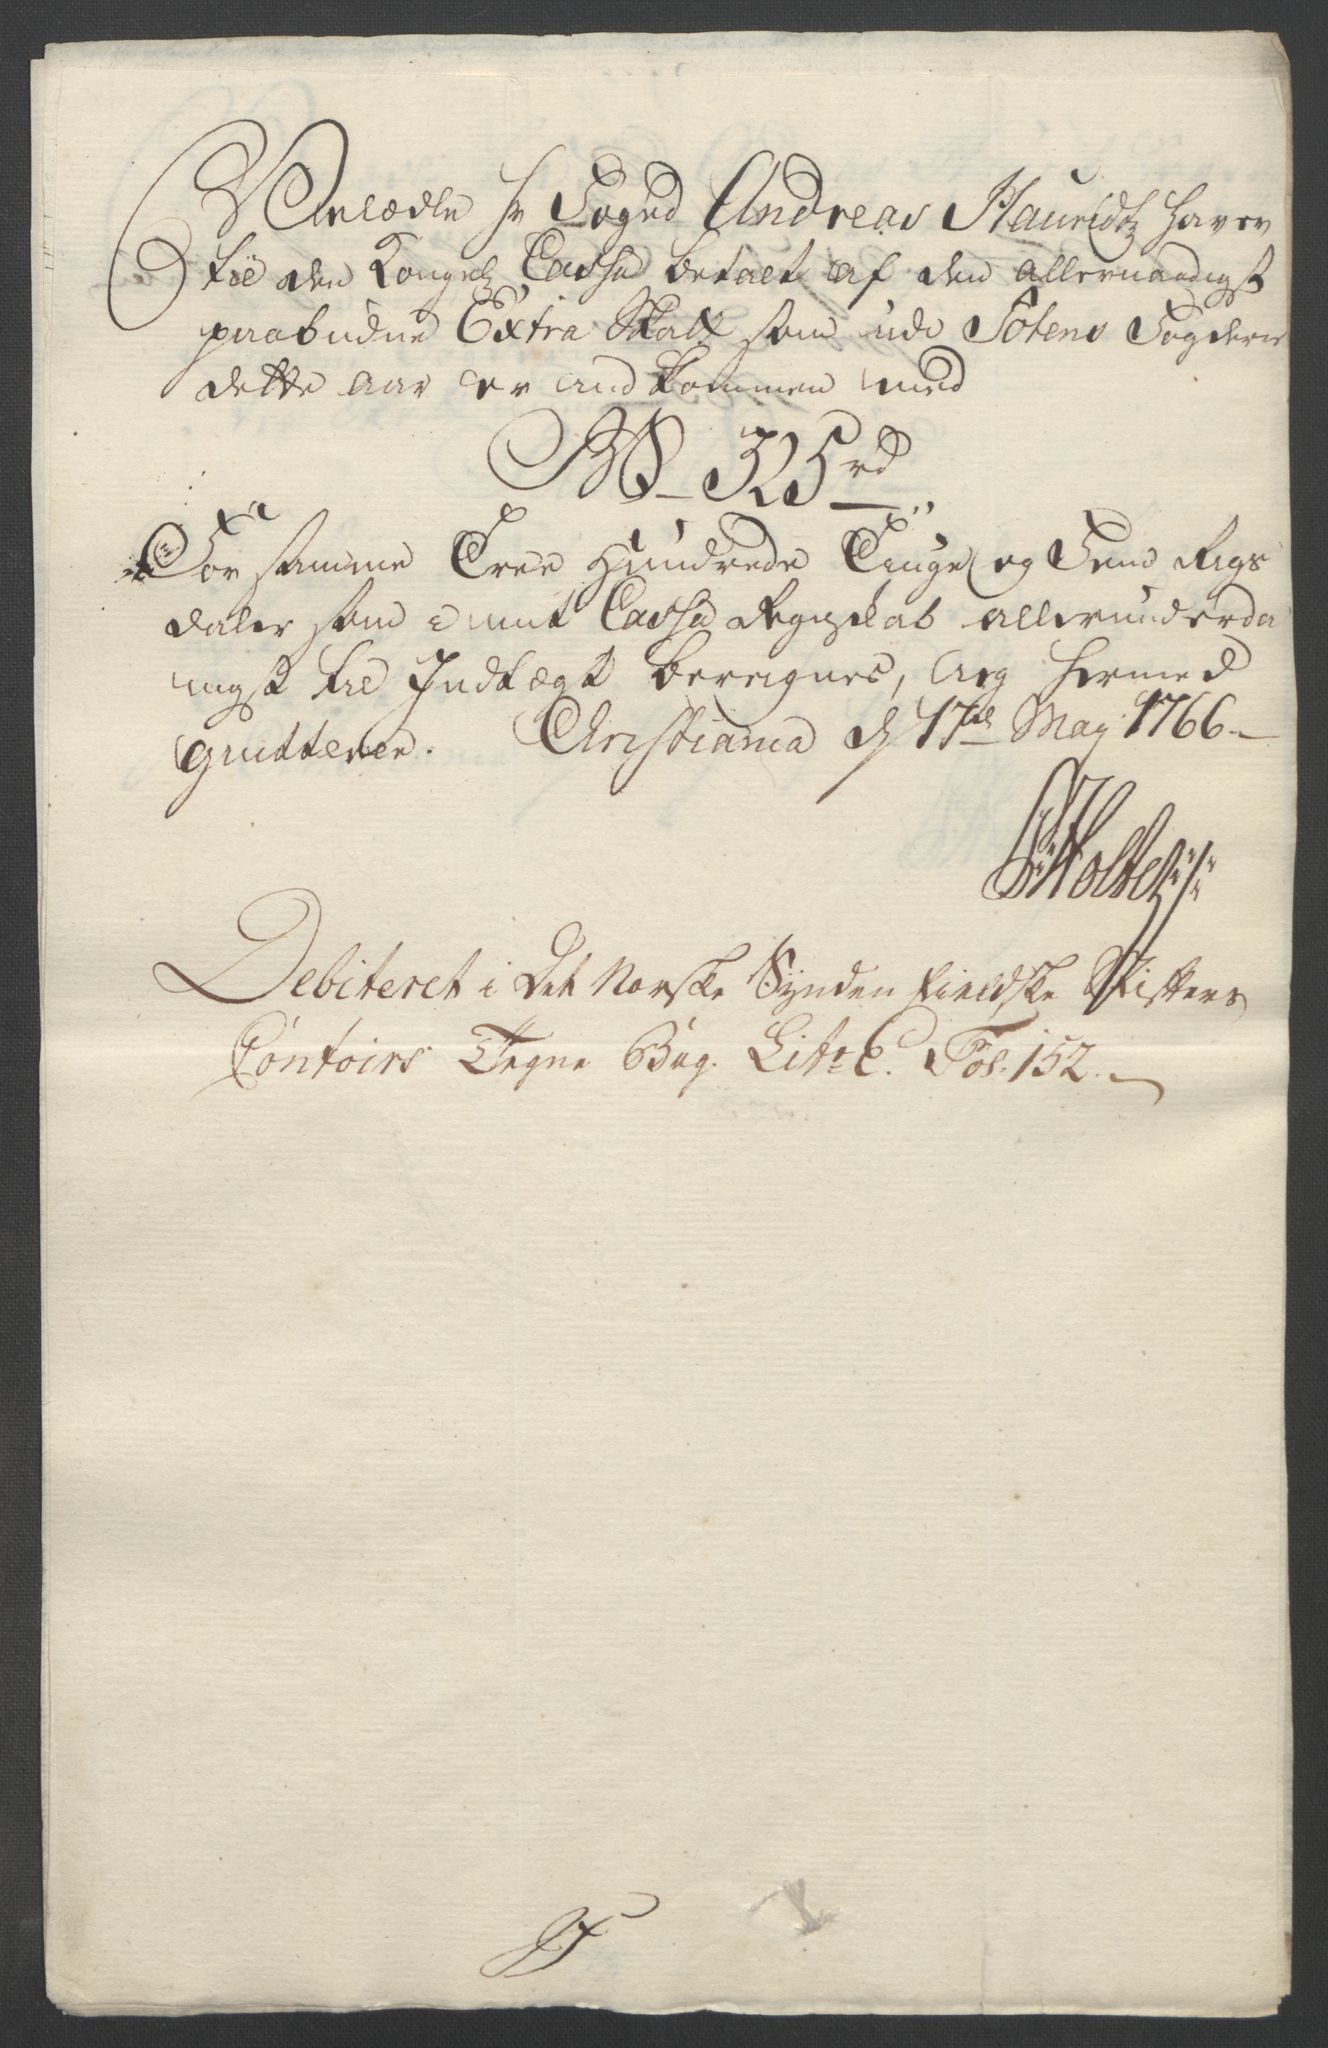 Velædle Hr Foged Andreas Hauridtz haver
til den Kongel Cassa betalt af den allernaadigst
paabudne Extra Skatt som udi Totens Fogderie
dette aar er indkommen med
325 rd
For samme Tree Hundrede Tiuge og Fem Rigs
daler som i mit Cassa Regnskab allerunderda
nigst til Indtægt beregnes, hermed
quitteres. Christiania d 17de May 1766
Holte
Debiteret i Det Norske Syndenfieldske Stifters
Contoirs Tegne Bog. Litr C. Fol. 152.